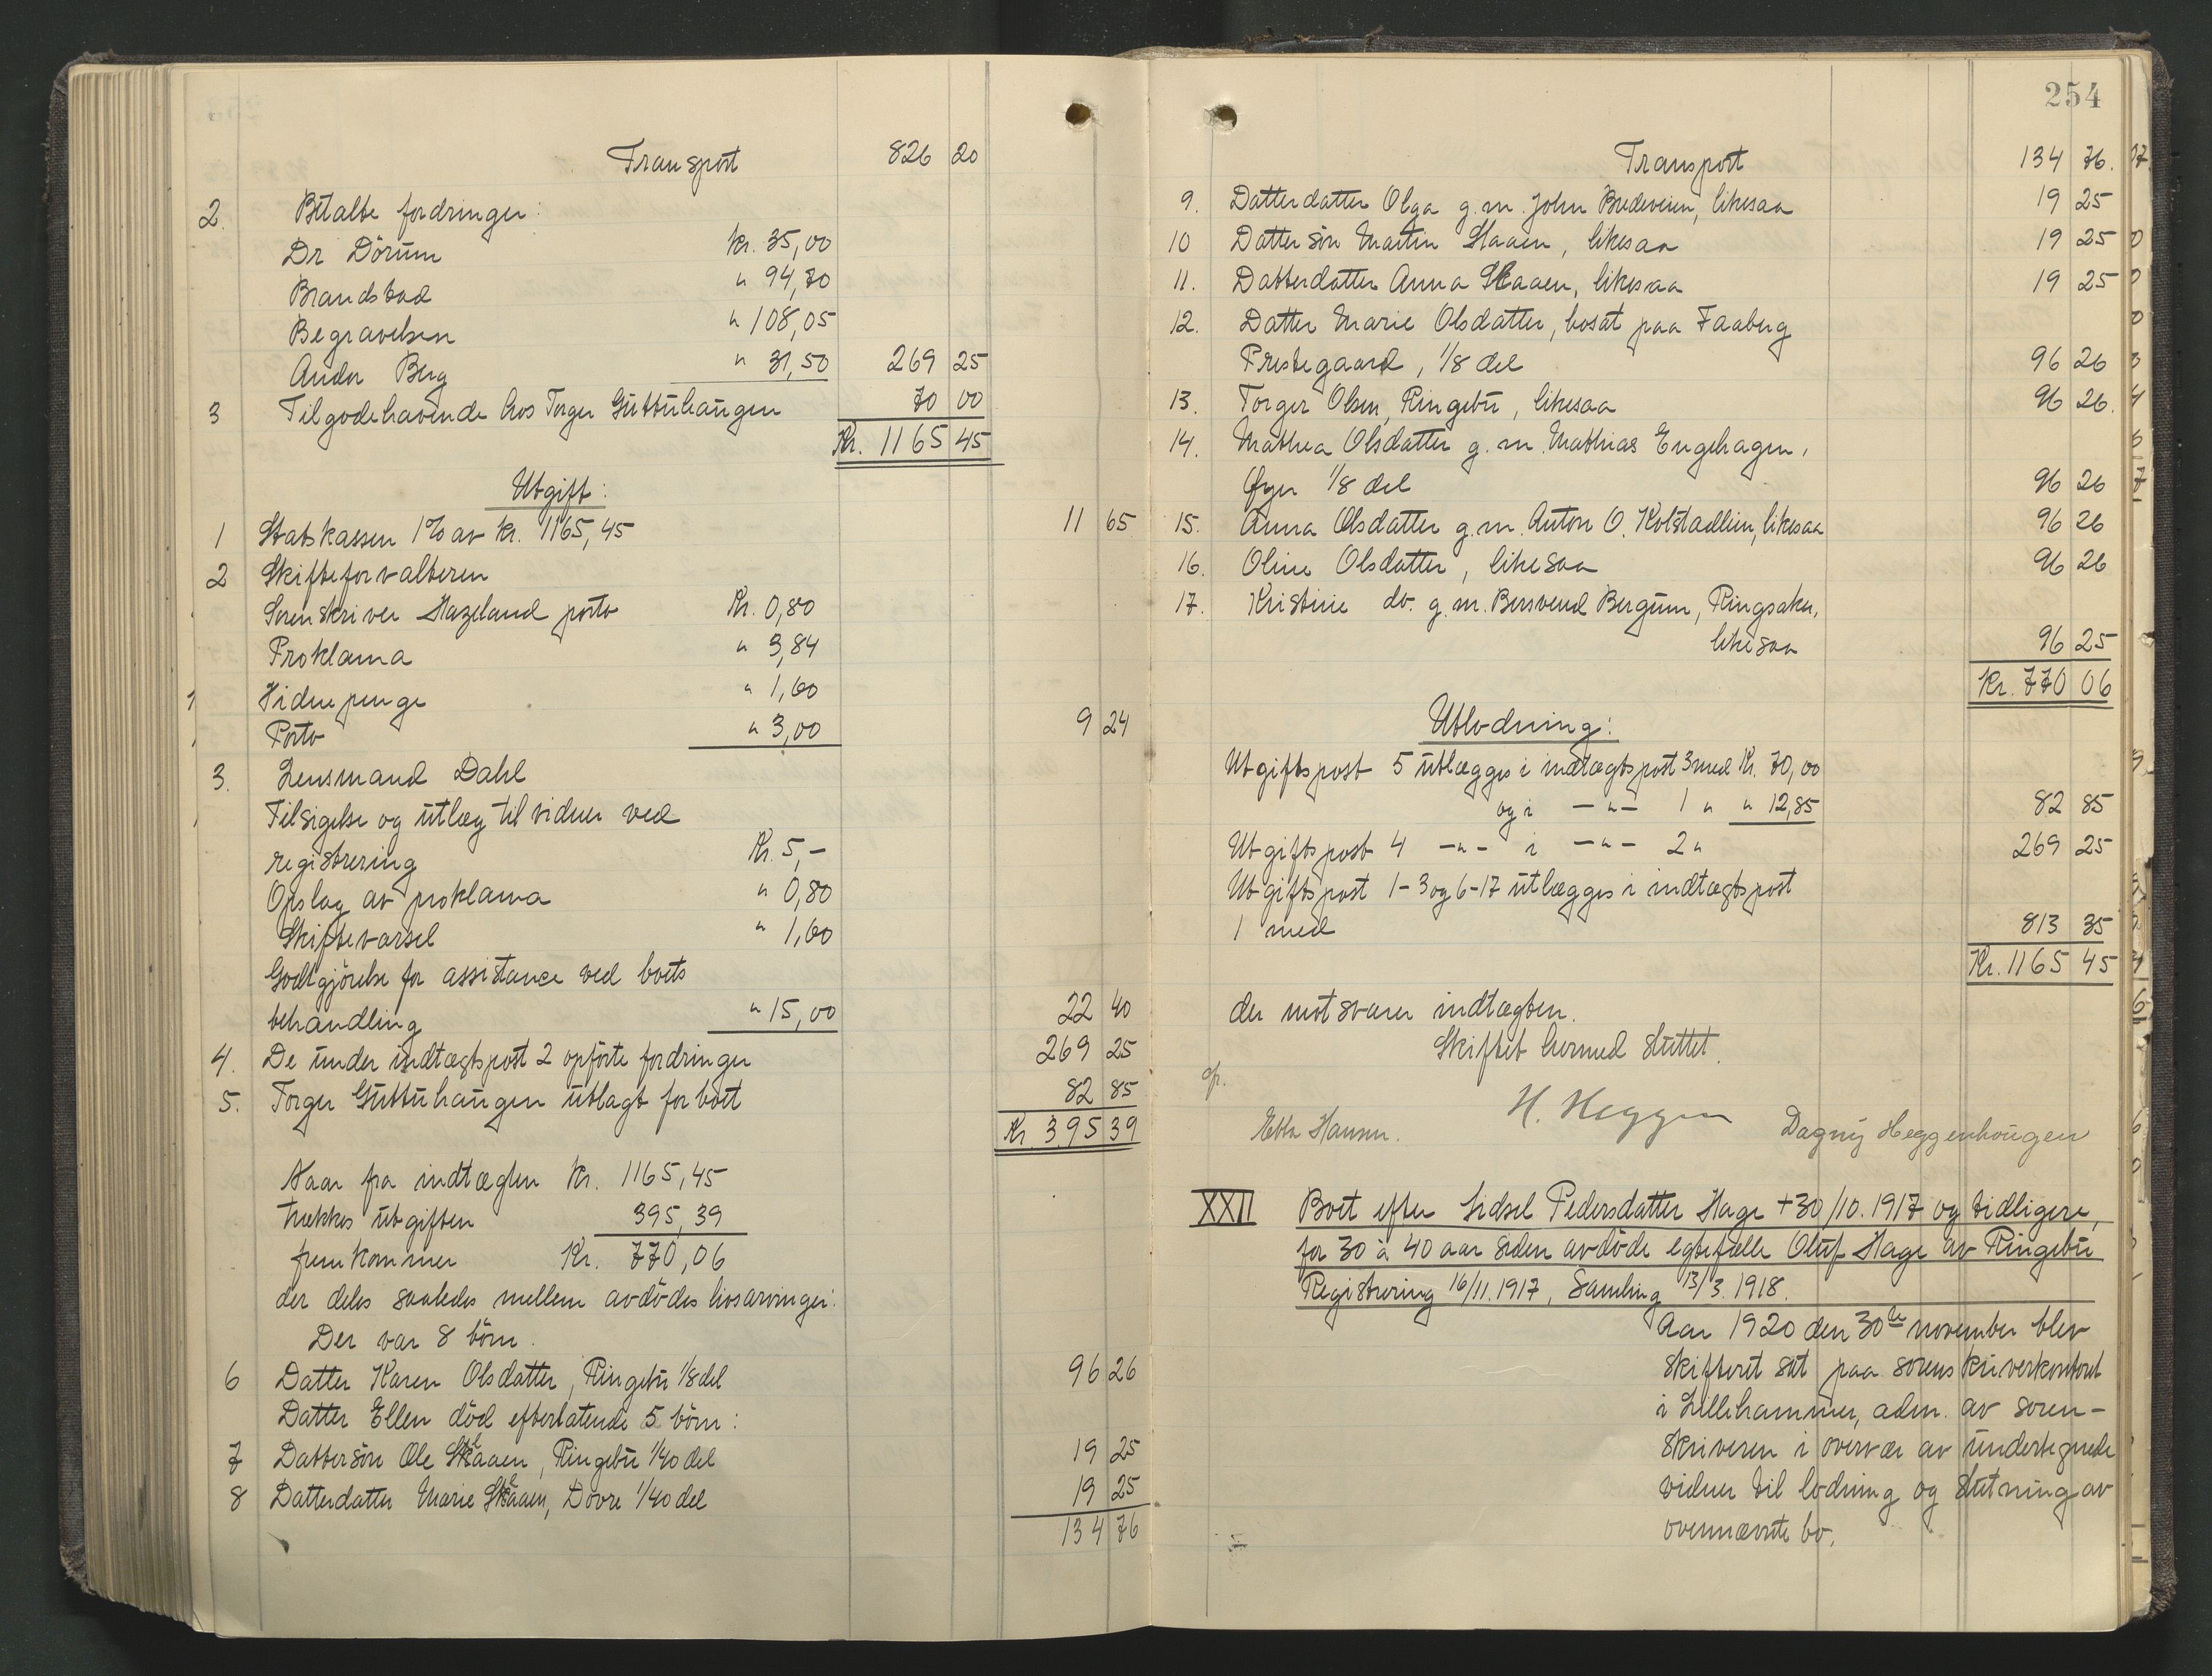 Transport 826 20
2. Betalte fordringer:
Dr Dörum Kr. 35,00
Brandstad " 94,70
Begravelsen " 108,05
Ander Berg " 31,50 269 25
3 Tilgodehavende hos Torger Guttuhaugen 70 00
Kr. 1165 45
Utgift:
1 Statskassen 1% av kr. 1165,45 11 65
2 Skifteforvalteren
Sorenskriver Hazeland porto Kr. 0,80
Proklama " 3,84
Vidnepenge " 1,60
Porto " 3,00 9 24
3. Lensmand Dahl
Tilsigelse og utlæg til vidner ved
registrering Kr. 5,-
Opslag av proklama " 0,80
Skiftevarsel " 1,60
Godtgjörelse for assistance ved boets
behandling " 15,00 22 40
4. De under indtægtspost 2 opförte fordringer 269 25
5. Torger Guttuhaugen utlagt for boet 82 85
Kr. 395 39
Naar fra indtægten Kr. 1165,45
trækkes utgiften 395,39
fremkommer Kr. 770,06
der deles saaledes mellem avdödes livsarvinger:
Der var 8 börn.
6 Datter Karen Olsdatter, Ringebu 1/8 del 96 26
Datter Ellen död efterlatende 5 börn:
7 Dattersön Ole Skaaen, Ringebu 1/40 del 19 25
8 Datterdatter Marie Skaaen, Dovre 1/40 del 19 25
134 76
254
Transport 134 76.
9. Datterdatter Olga g.m. John Bredeveien, likesaa 19 25
10 Dattersön Martin Skaaen, likesaa 19 25
11. Datterdatter Anna Skaaen, likesaa 19 25
12. Datter Marie Olsdatter, bosat paa Faaberg
Prestegaard, 1/8 del 96 26
13. Torger Olsen, Ringebu, likesaa 96 26.
14. Mathea Olsdatter g.m. Mathias Engehagen,
Øyer 1/8 del 96 26
15. Anna Olsdatter g.m. Anton O. Kolstadlien, likesaa 96 26
16. Oline Olsdatter, likesaa 96 26
17. Kristine do. g.m. Bersvend Bergum, Ringsaker,
likesaa 96 25
Kr. 770 06
Utlodning:
Utgiftspost 5 utlægges i indtægtspost 3 med Kr. 70,00
og i -"- 1 " " 12,85 82 85
Utgiftspost 4 -"- i -"- 2 " 269 25
Utgiftspost 1-3 og 6-17 utlægges i indtægtspost
1 med 813 35
Kr. 1165 45
der motsvarer indtægten.
Skiftet hermed sluttet.
H. Heggen
Ebba Hansen. Dagny Heggenhougen
XXII Boet efter Sidsel Pedersdatter Hage +30/10. 1917 og tidligere,
for 30 à 40 aar siden avdöde egtefælle Oluf Hage av Ringebu
Registrering 16/11. 1917, Samling 13/3. 1918.
Aar 1920 den 30te november blev
skifteret sat paa sorenskriverkontoret
i Lillehammer, adm. av soren-
skriveren i overvær av undertegnede
vidner til lodning og slutning av
ovennævnte bo.